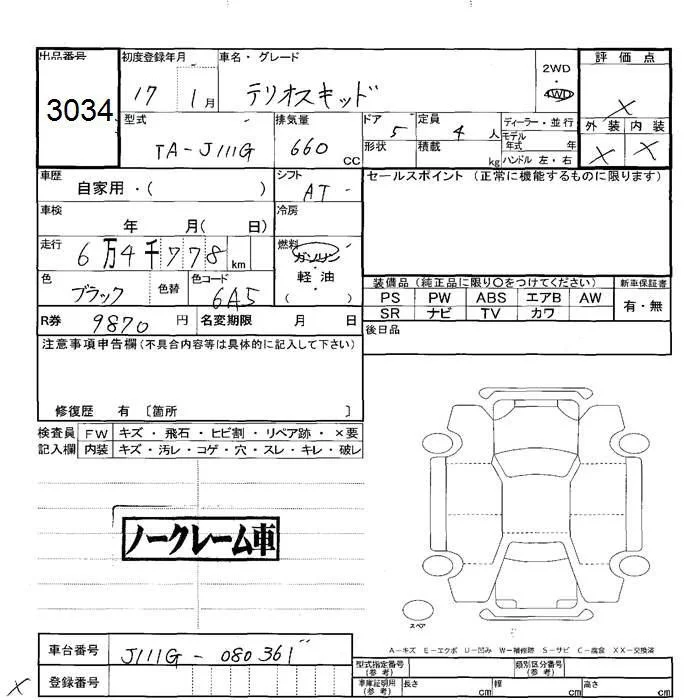 出品番号 初度登録年月 車名・グレード 2WD ・ 4WD 評価点
3034 17 1月 テリオスキッド X
型式 排気量 ドア 5 定員 4 人 ディーラー・並行 外装 内装
TA-J111G 660 CC 形状 積載 kg モデル年式 年 X X
ハンドル 左・右
車歴 自家用・( ) シフト AT セールスポイント (正常に機能するものに限ります)
車検 年 月( 日) 冷房
走行 6万4千778 km 燃料 ガソリン
軽・油
( )
色 ブラック 色替 色コード 6A5 装備品 (純正品に限り○をつけてください) 新車保証書
PS PW ABS エアB AW 有・無
R券 9870 円 名変期限 月 日 SR ナビ TV カワ
注意事項申告欄(不具合内容等は具体的に記入して下さい) 後日品
修復歴 有 〔箇所 〕
検査員 FW キズ・飛石・ヒビ割・リペア跡・×要
記入欄 内装 キズ・汚レ・コゲ・穴・スレ・キレ・破レ
ノークレーム車
スペア
A-キズ E-エクボ U-凹み W-補修跡 S-サビ C-腐食 XX-交換済
車台番号 J111G-080361 型式指定番号(参考) 類別区分番号(参考)
X 登録番号 車庫証明用(参考) 長さ cm 幅 cm 高さ cm